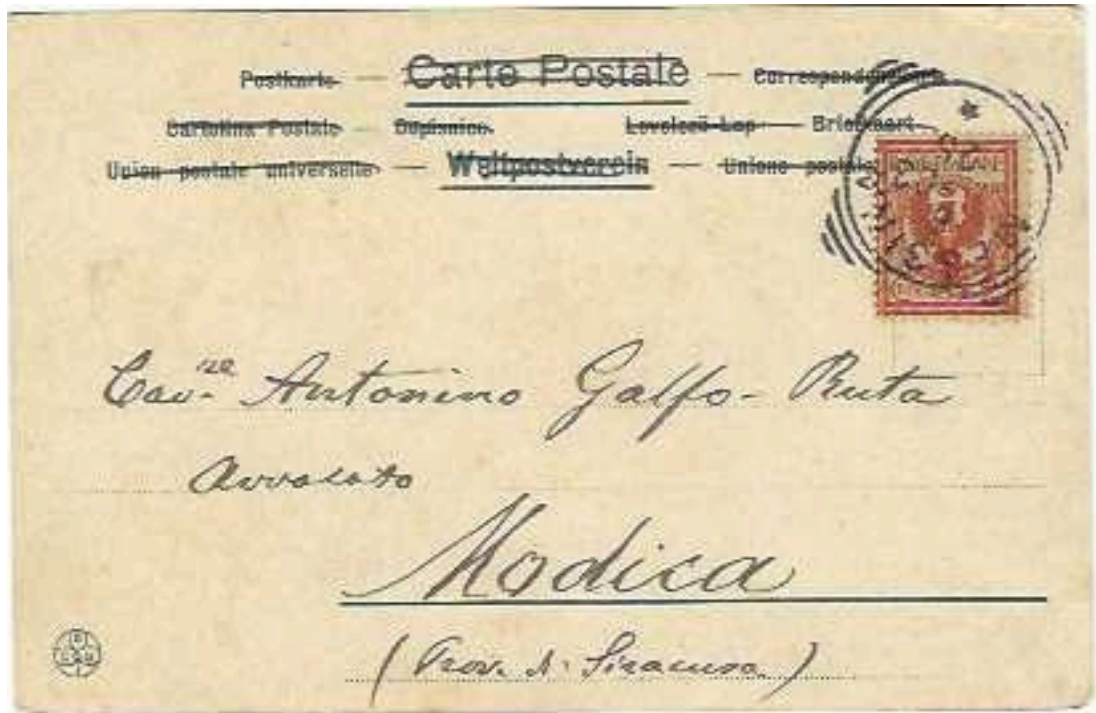 Postkarte — Carte Postale — Correspondenzkarte
Cartolina Postale Dopisnice. Levelező-Lap Briefkaart
Union postale universelle. — Weltpostverein — Unione postale
Cav.re Antonino Galfo-Ruta
Avvocato
Modica
(Prov. di Siracusa)